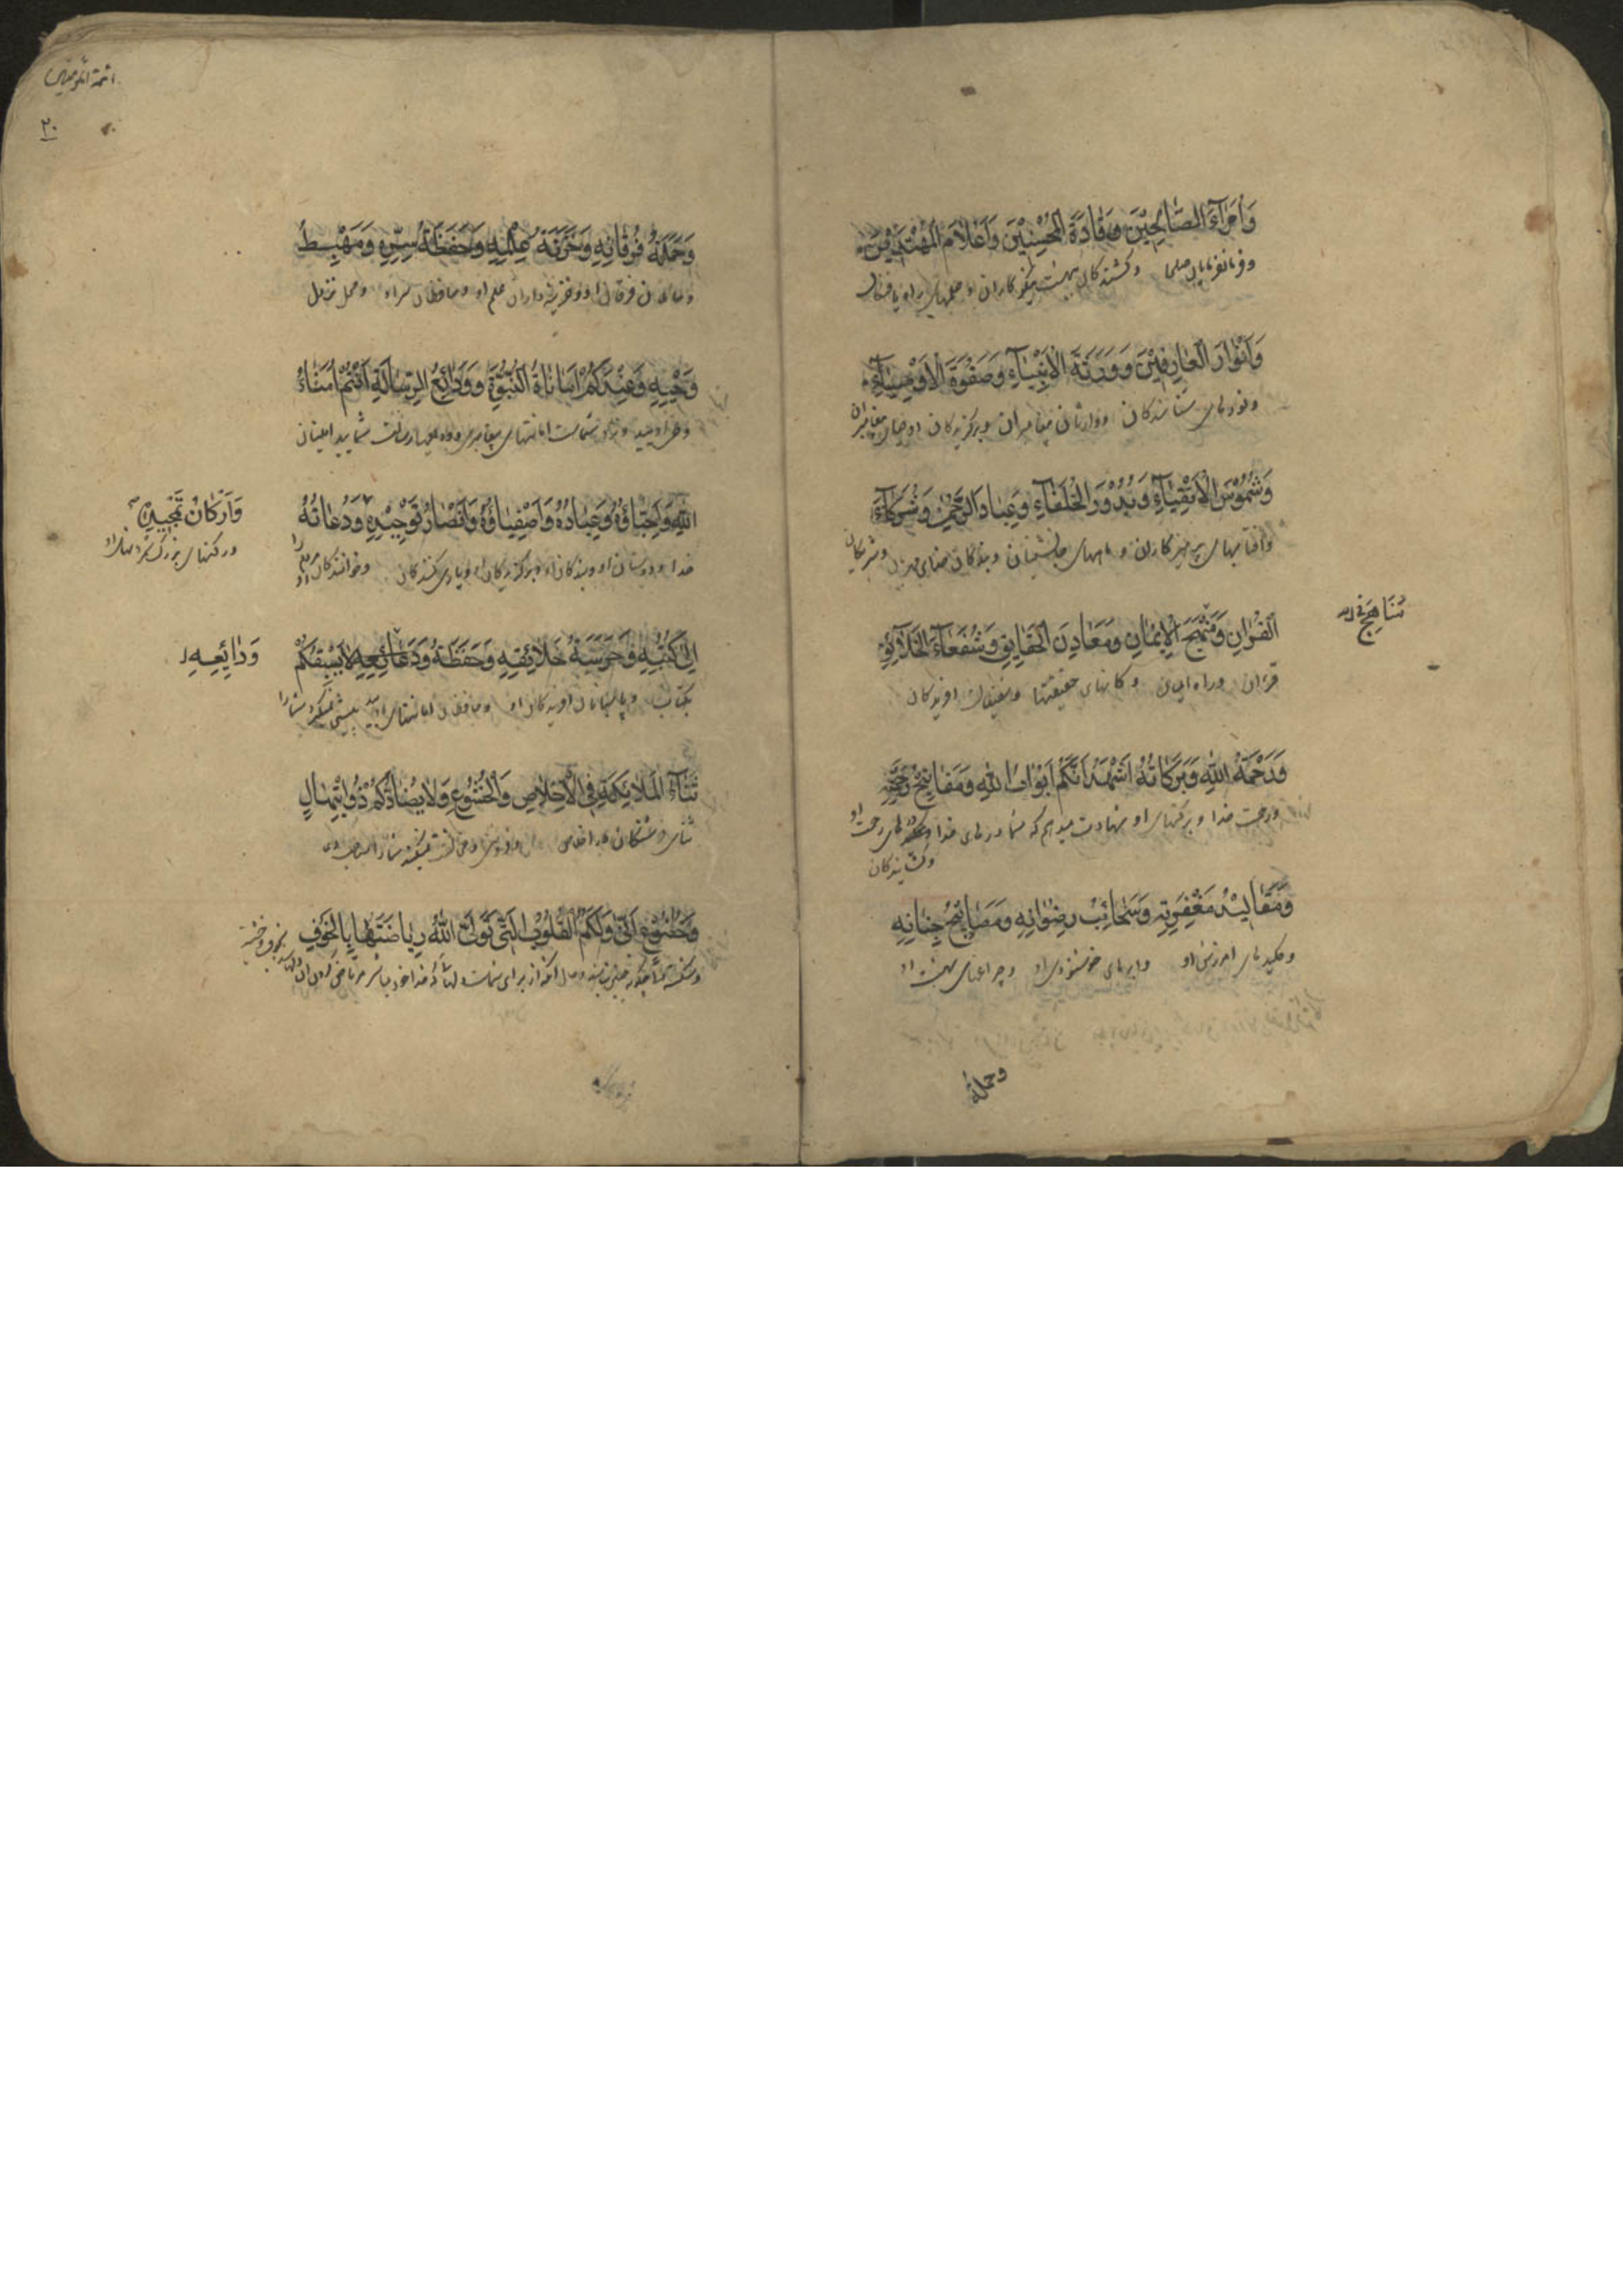 وَاُمَرٰآءَ الصّٰالِحِيْنَ وَقٰادَةَ الْمُحْسِنِيْنَ وَاَعْلٰامَ الْمُهْتَدِيْنَ
وفرمانفرمایان صلحا وکشندکان بهشت نیکوکاران و علمهای راه یافتکان
وَاَنْوٰارَ الْعٰارِفِيْنَ وَوَرَثَةَ الْاَنْبِيٰآءِ وَصَفْوَةَ الْاَوْصِيٰآءِ
ونورهای شناسندکان ووارثان پیغامبران وبرکزیدکان اوصیای پیغامبران
وَشُمُوْسَ الْاَتْقِيٰآءِ وَبُدُوْرَ الْخُلَفٰآءِ وَعِبٰادَ الرَّحْمٰنِ وَشُرَكٰآءَ
وافتابهای پرهیزکاران و ماههای جانشینان وبندکان خدای مهربان وشریکان
الْقُرْاٰنِ وَمَنْهَجَ الْاِيْمٰانِ وَمَعٰادِنَ الْحَقٰايِقِ وَشُفَعٰآءَ الْخَلٰآئِقِ
مَنٰاهِجَ
قرءان وراه ایمان وکانهای حقیقتها وشفیعان افریدکان
وَرَحْمَةُ اللّٰهِ وَبَرَكٰاتُهُ اَشْهَدُ اَنَّكُمْ اَبْوٰابُ اللّٰهِ وَمَفٰاتِيْحُ رَحْمَتِهِ
ورحمت خدا وبرکتهای او شهادت میدهم که شما درهای خدا رحمت او
وَمَقٰالِيْدُ مَغْفِرَتِهِ وَسَحٰائِبُ رِضْوٰانِهِ وَمَصٰابِيْحُ جِنٰانِهِ
وکلیدهای امرزش او وابرهای خوشنودی او وچراغهای بهشت او
وحملة
ائمة المؤمنین
۲۰
وَحَمَلَةُ فُرْقٰانِهِ وَخَزَنَةُ عِلْمِهِ وَحَفَظَةُ سِرِّهِ وَمَهْبِطُ
وحاملان فرقان او وخزینه داران علم او ومحافظان سر او ومحل نزول
وَحْيِهِ وَعِنْدَكُمْ اَمٰانٰاتُ النُّبُوَّةِ وَوَدٰائِعُ الرِّسٰالَةِ اَنْتُمْ اُمَنٰاءُ
ونزد شماست امانتهای پیغامبری رسالت شمایید امینان
اللّٰهِ وَاَحِبّٰاؤُهُ وَعِبٰادُهُ وَاَصْفِيٰاؤُهُ وَاَنْصٰارُ تَوْحِيْدِهِ وَدُعٰاتُهُ
وَاَرْكٰانُ تَمْجِيْدِهِ
خدا ودوستان او وبندکان او وبرکزیدکان او ویاری کنندکان وخوانندکان
ورکنهای بزرک
اِلٰى كُتُبِهِ وَحَرَسَةُ خَلٰائِقِهِ وَحَفَظَةُ وَدَائِعِهِ لٰا يَسْبِقُكُمْ
وَدٰايِعِهِ
بکتاب وپاسبانان افریدکان او ومحافظان امانتهای او پیشی نمیکیرد شما را
ثَنٰآءُ الْمَلٰائِكَةِ فِى الْاِخْلٰاصِ وَالْخُشُوْعِ وَلٰا يُضٰادُّكُمْ ذُوابْتِهٰالٍ
ثنای فرشتکان در اخلاص
وَخُضُوْعٍ اَنّٰى وَلَكُمُ الْقُلُوْبُ الَّتِى تَوَلَّى اللّٰهُ رِيٰاضَتَهٰا بِالْخَوْفِ